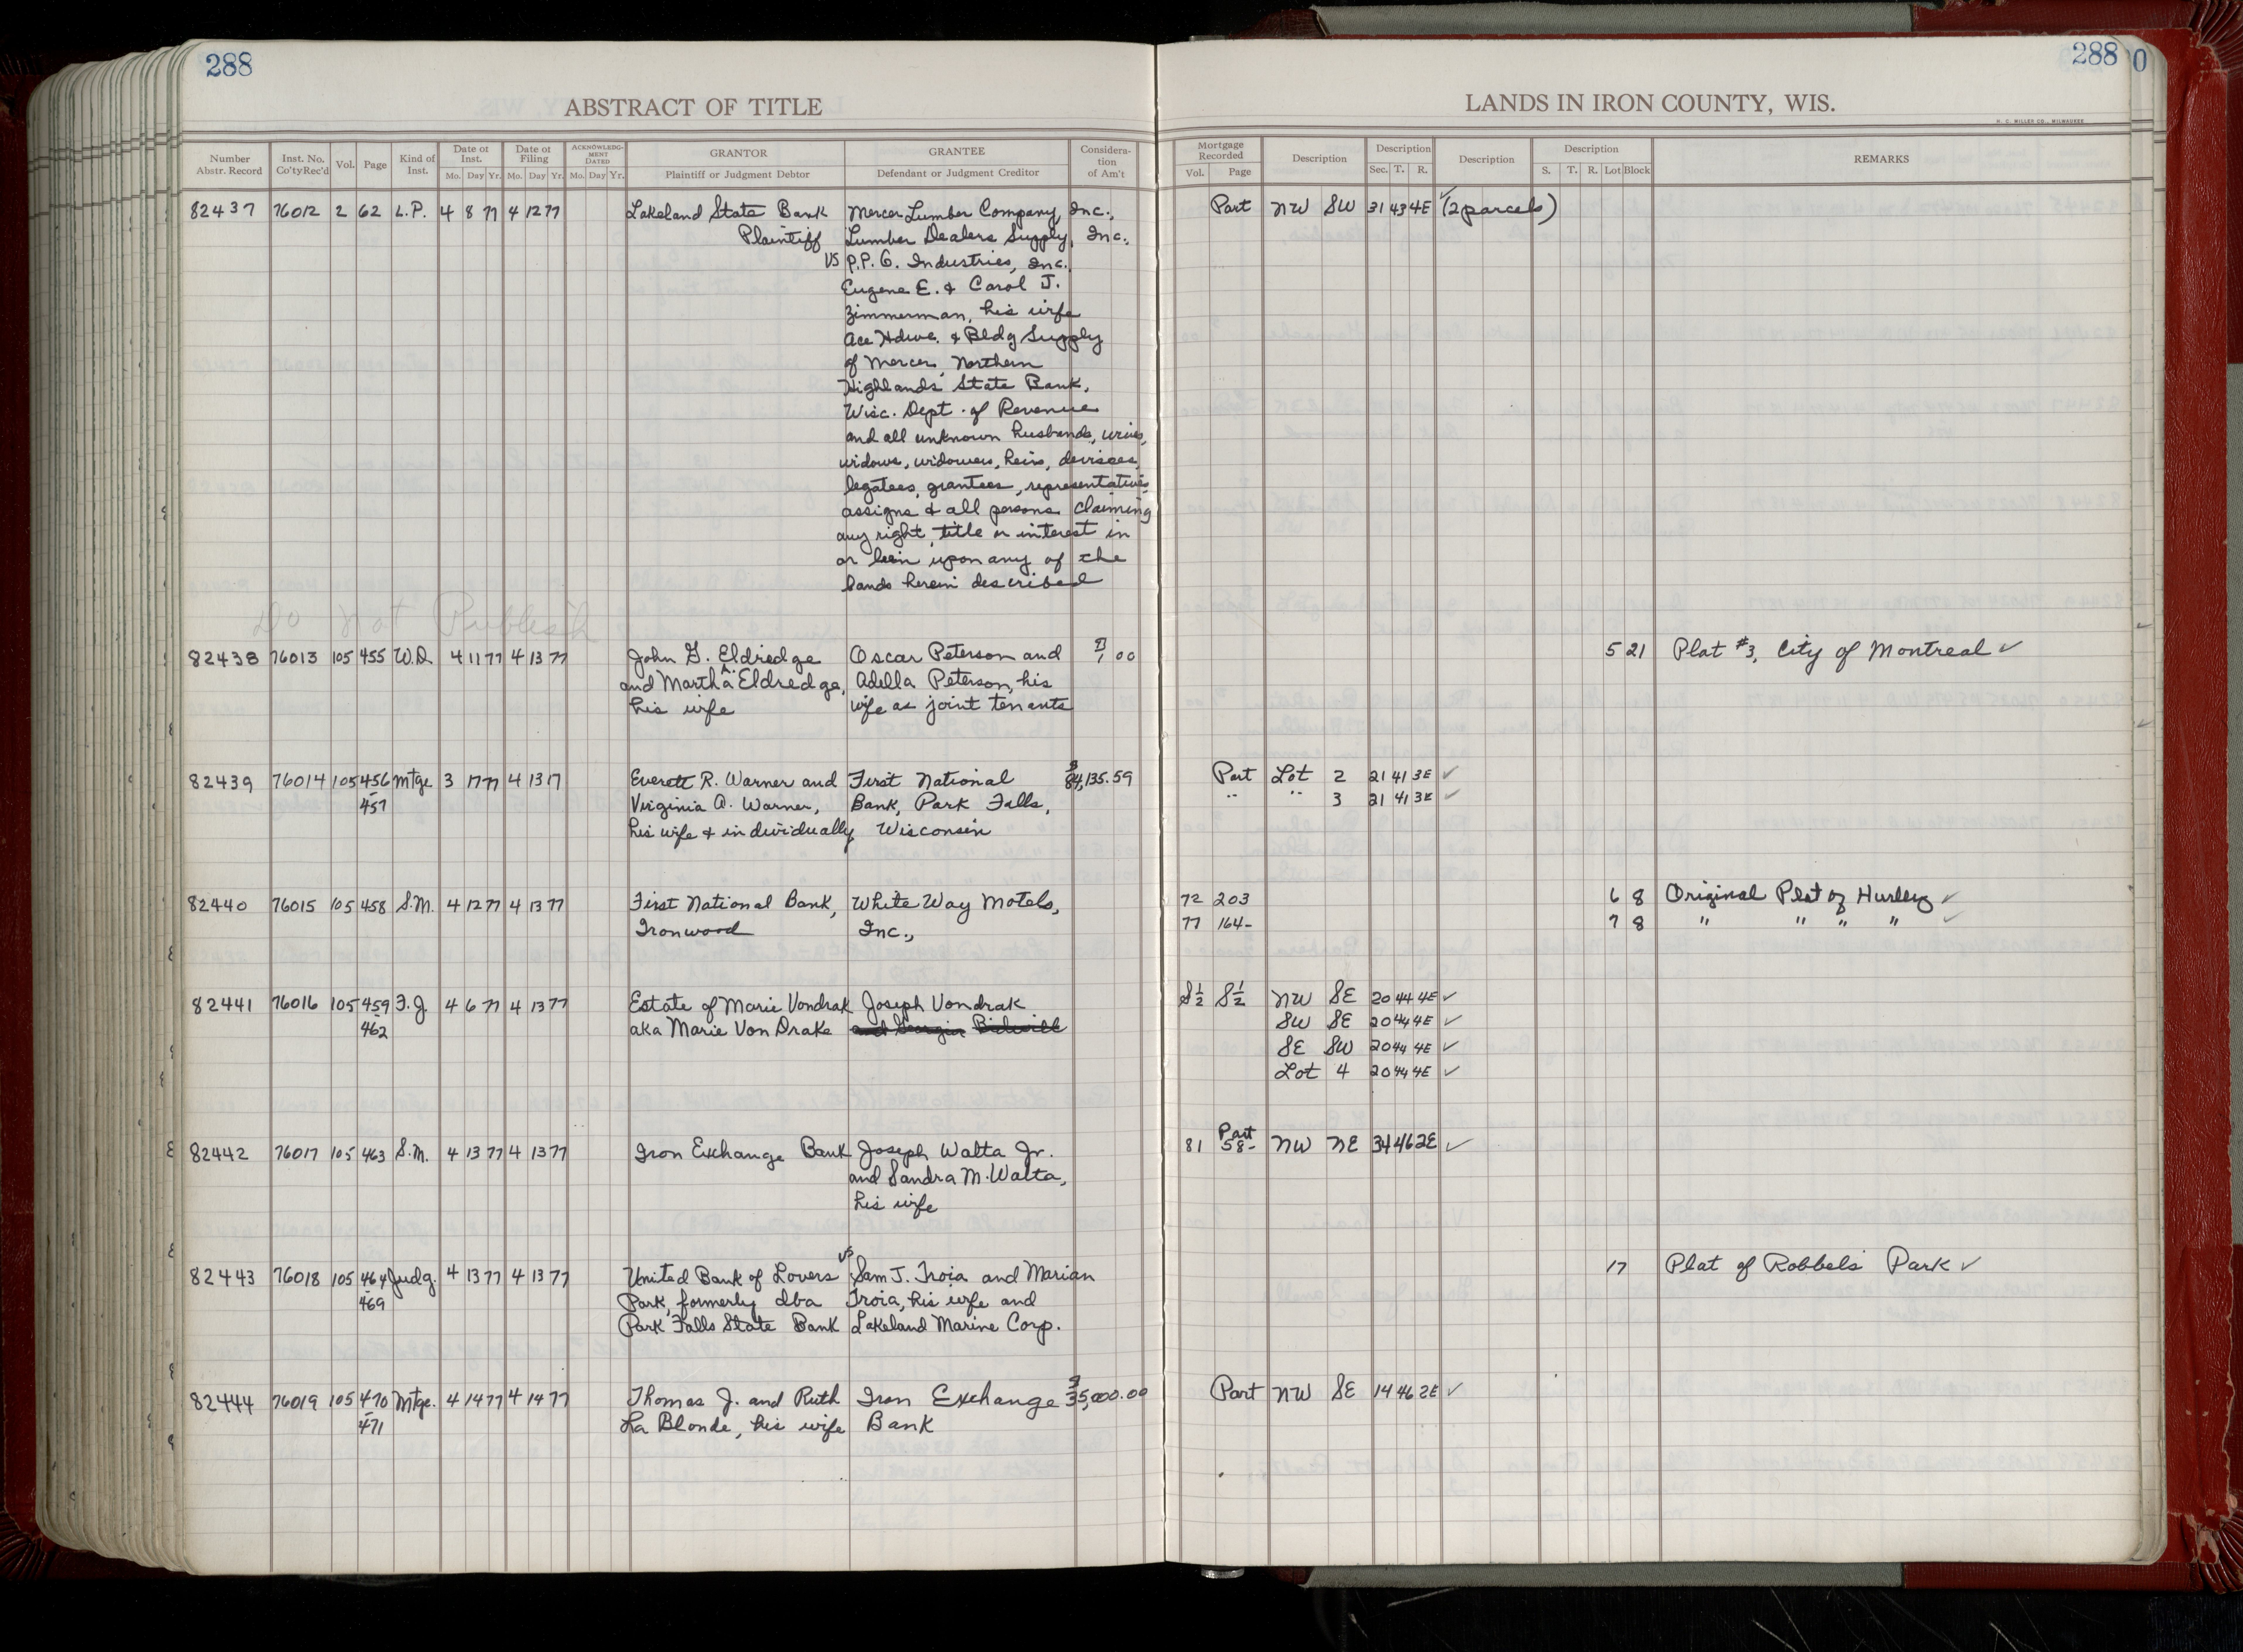 288
288
0
ABSTRACT OF TITLE
LANDS IN IRON COUNTY, WIS.
H. C. MILLER CO., MILWAUKEE
Number Abstr. Record | Inst. No. Co'tyRec'd | Vol. | Page | Kind of Inst. | Date of Inst. Mo. Day Yr. | Date of Filing Mo. Day Yr. | ACKNOWLEDGMENT DATED Mo. Day Yr. | GRANTOR Plaintiff or Judgment Debtor | GRANTEE Defendant or Judgment Creditor | Consideration of Am't | Mortgage Recorded Vol. Page | Description | Description Sec. T. R. | Description | Description S. T. R. Lot Block | REMARKS
82437 76012 2 62 L.P. 4 8 77 4 12 77 Lakeland State Bank Mercer Lumber Company, Inc., Part NW SW 31 43 4E (2 parcels)
Plaintiff Lumber Dealers Supply, Inc.,
VS P.P.G. Industries, Inc.
Eugene E. & Carol J.
Zimmerman, his wife
Ace Hdwe. & Bldg Supply
of Mercer, Northern
Highlands State Bank,
Wisc. Dept. of Revenue
and all unknown husbands, wives,
widows, widowers, heirs, devisees,
legatees, grantees, representatives
assigns & all persons claiming
any right, title or interest in
or lein upon any of the
lands herein described
Do Not Publish
82438 76013 105 455 W.D. 4 11 77 4 13 77 John G. Eldredge Oscar Peterson and $1.00 5 21 Plat #3, City of Montreal ✓
and Martha A. Eldredge, Adella Peterson, his
his wife wife as joint tenants
82439 76014 105 456 Mtge 3 17 77 4 13 17 Everett R. Warner and First National $84,135.59 Part Lot 2 21 41 3E ✓
- 457 Virginia A. Warner, Bank, Park Falls, " " 3 21 41 3E ✓
his wife & individually Wisconsin
82440 76015 105 458 S.M. 4 12 77 4 13 77 First National Bank, White Way Motels, 72 203 6 8 Original Plat of Hurley ✓
Ironwood Inc., 77 164- 7 8 " " " " ✓
82441 76016 105 459 F.J. 4 6 77 4 13 77 Estate of Marie Vondrak Joseph Vondrak S½ S½ NW SE 20 44 4E ✓
- 462 aka Marie Von Drake and Georgia Bidwill SW SE 20 44 4E ✓
SE SW 20 44 4E ✓
Lot 4 20 44 4E ✓
82442 76017 105 463 S.M. 4 13 77 4 13 77 Iron Exchange Bank Joseph Walta Jr. 81 58- Part NW NE 34 46 2E ✓
and Sandra M. Walta,
his wife
82443 76018 105 464 Judg. 4 13 77 4 13 77 United Bank of Lovers VS Sam J. Troia and Marian 17 Plat of Robbels Park ✓
- 469 Park, formerly dba Troia, his wife and
Park Falls State Bank Lakeland Marine Corp.
82444 76019 105 470 Mtge. 4 14 77 4 14 77 Thomas J. and Ruth Iron Exchange $35,000.00 Part NW SE 14 46 2E ✓
- 471 La Blonde, his wife Bank